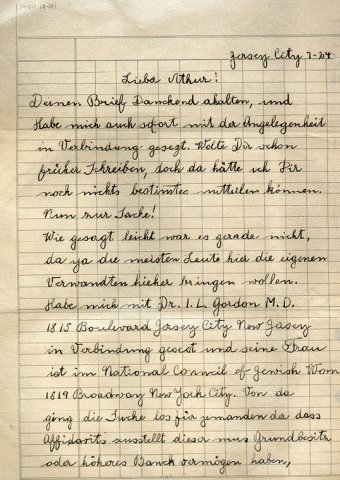 Jersey City 7-34
Lieber Arthur!
Deinen Brief Danckend ahalten, und
Habe mich auch sofort mit der Angelegenheit
in Verbindung gesezt. Wolte Dir schon
früher Schreiben, doch da hätte ich Dir
noch nichts bestimtes mitteilen können.
Nun zur Sache!
Wie gesagt leicht war es gerade nicht,
da ja die meisten Leute hier die eigenen
Verwandten hieher bringen wollen.
Habe mich mit Dr. I. L. Gordon M. D.
1815 Boulevard Jersey City New Jasey
in Verbindung gesest und seine Frau
ist im National Council of Jewish Wom
1819 Broadway New York City. Von da
ging die Suche los für jemanden der dass
Affidavits ausstellt dieser mus Grundbesitz
oder höheres Banck vermögen haben,